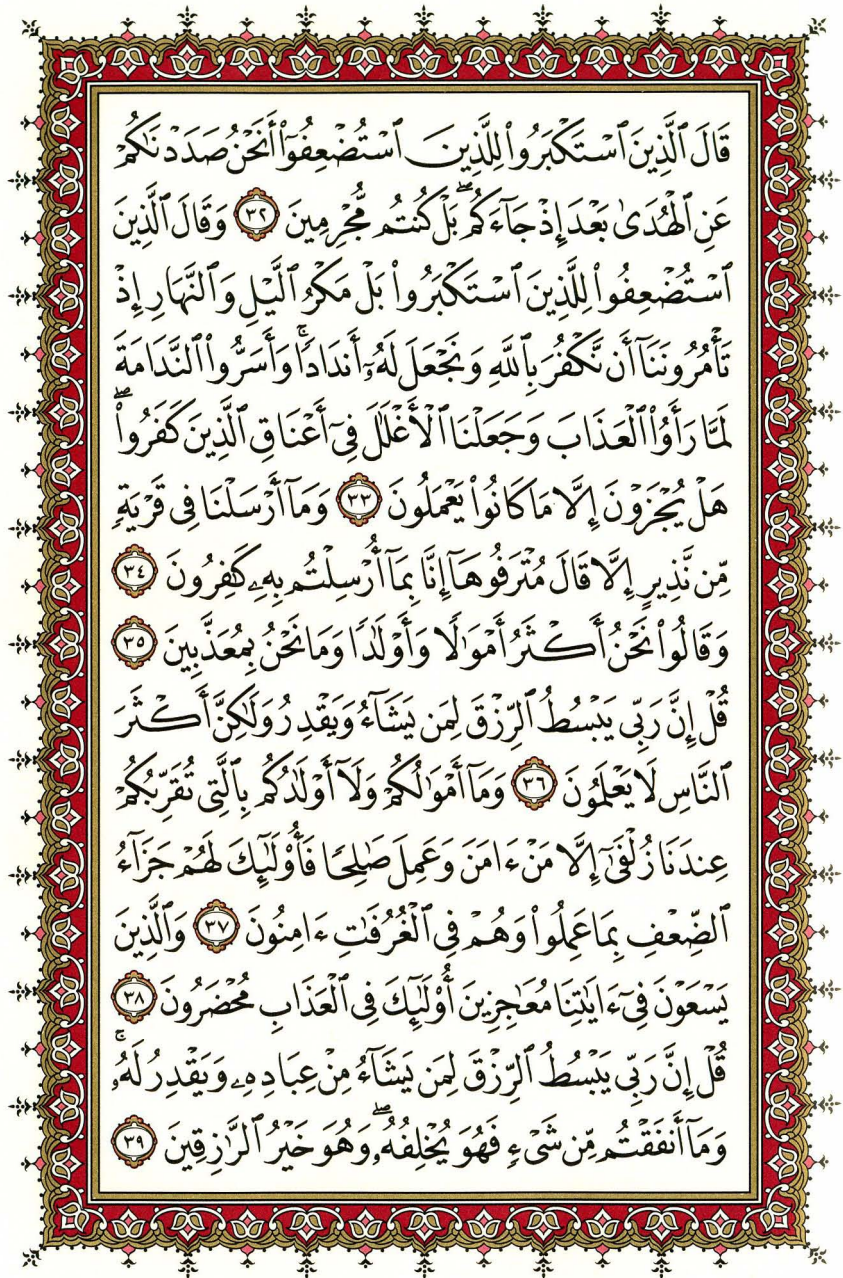 قَالَ ٱلَّذِينَ ٱسْتَكْبَرُوا۟ لِلَّذِينَ ٱسْتُضْعِفُوٓا۟ أَنَحْنُ صَدَدْنَٰكُمْ
عَنِ ٱلْهُدَىٰ بَعْدَ إِذْ جَآءَكُمۖ بَلْ كُنتُم مُّجْرِمِينَ ٣٢ وَقَالَ ٱلَّذِينَ
ٱسْتُضْعِفُوا۟ لِلَّذِينَ ٱسْتَكْبَرُوا۟ بَلْ مَكْرُ ٱلَّيْلِ وَٱلنَّهَارِ إِذْ
تَأْمُرُونَنَآ أَن نَّكْفُرَ بِٱللَّهِ وَنَجْعَلَ لَهُۥٓ أَندَادًاۚ وَأَسَرُّوا۟ ٱلنَّدَامَةَ
لَمَّا رَأَوُا۟ ٱلْعَذَابَ وَجَعَلْنَا ٱلْأَغْلَٰلَ فِىٓ أَعْنَاقِ ٱلَّذِينَ كَفَرُوا۟ۖ
هَلْ يُجْزَوْنَ إِلَّا مَا كَانُوا۟ يَعْمَلُونَ ٣٣ وَمَآ أَرْسَلْنَا فِى قَرْيَةٍ
مِّن نَّذِيرٍ إِلَّا قَالَ مُتْرَفُوهَآ إِنَّا بِمَآ أُرْسِلْتُم بِهِۦ كَٰفِرُونَ ٣٤
وَقَالُوا۟ نَحْنُ أَكْثَرُ أَمْوَٰلًا وَأَوْلَٰدًا وَمَا نَحْنُ بِمُعَذَّبِينَ ٣٥
قُلْ إِنَّ رَبِّى يَبْسُطُ ٱلرِّزْقَ لِمَن يَشَآءُ وَيَقْدِرُ وَلَٰكِنَّ أَكْثَرَ
ٱلنَّاسِ لَا يَعْلَمُونَ ٣٦ وَمَآ أَمْوَٰلُكُمْ وَلَآ أَوْلَٰدُكُم بِٱلَّتِى تُقَرِّبُكُمْ
عِندَنَا زُلْفَىٰٓ إِلَّا مَنْ ءَامَنَ وَعَمِلَ صَٰلِحًا فَأُو۟لَٰٓئِكَ لَهُمْ جَزَآءُ
ٱلضِّعْفِ بِمَا عَمِلُوا۟ وَهُمْ فِى ٱلْغُرُفَٰتِ ءَامِنُونَ ٣٧ وَٱلَّذِينَ
يَسْعَوْنَ فِىٓ ءَايَٰتِنَا مُعَٰجِزِينَ أُو۟لَٰٓئِكَ فِى ٱلْعَذَابِ مُحْضَرُونَ ٣٨
قُلْ إِنَّ رَبِّى يَبْسُطُ ٱلرِّزْقَ لِمَن يَشَآءُ مِنْ عِبَادِهِۦ وَيَقْدِرُ لَهُۥۚ
وَمَآ أَنفَقْتُم مِّن شَىْءٍ فَهُوَ يُخْلِفُهُۥۖ وَهُوَ خَيْرُ ٱلرَّٰزِقِينَ ٣٩